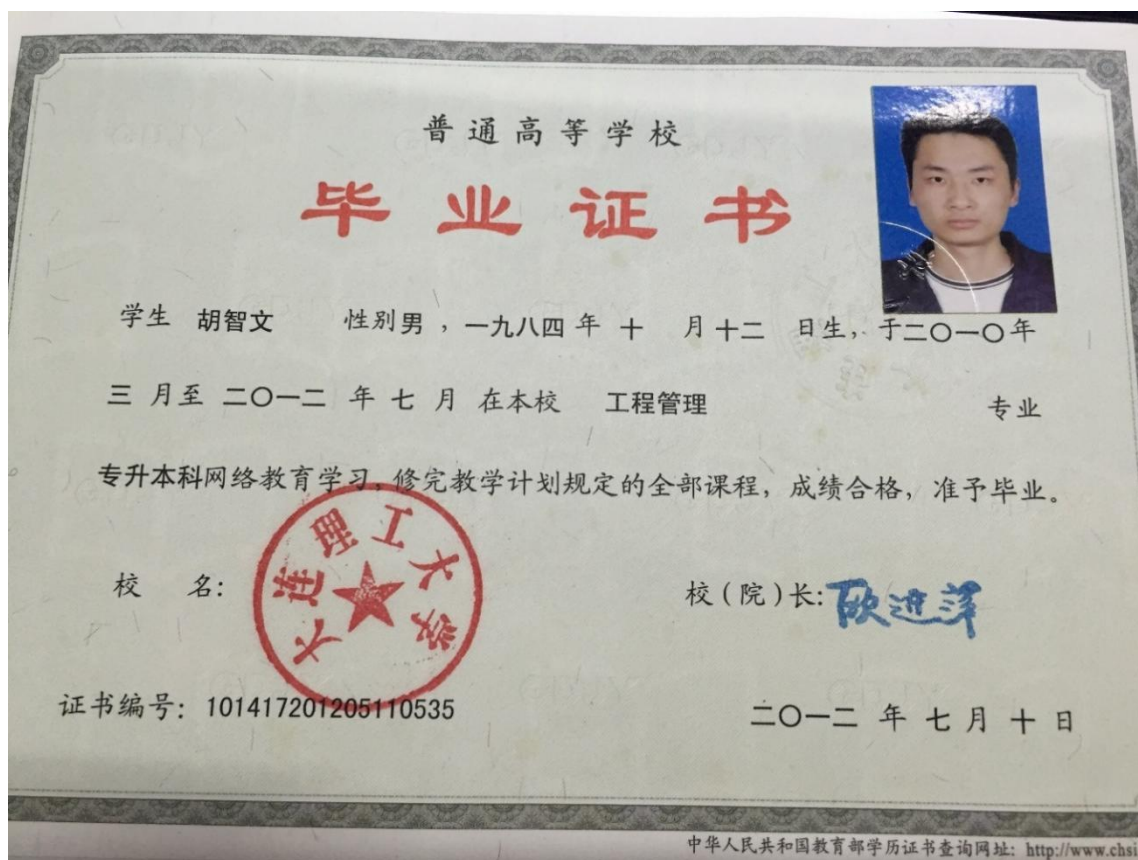 普通高等学校
毕业证书
学生 胡智文 性别男，一九八四年 十 月十二 日生，于二〇一〇年
三 月至 二〇一二 年 七 月 在本校 工程管理 专业
专升本科网络教育学习，修完教学计划规定的全部课程，成绩合格，准予毕业。
校 名：
大连理工大学
校（院）长：欧进萍
证书编号：101417201205110535
二〇一二 年 七 月 十 日
中华人民共和国教育部学历证书查询网址：http://www.chsi